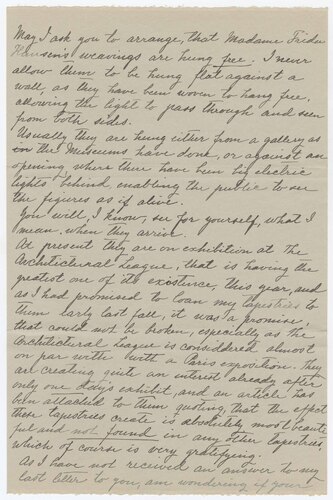 May I ask you to arrange, that Madame Frida
Hansen's weavings are hung free. I never
allow them to be hung flat against a
wall, as they have been woven to hang free,
allowing the light to pass through and seen
from both sides.
Usually they are hung either from a gallery as
in the Museums have done, or against an
opening where there have been big electric
lights behind enabling the public to see
the figures as if alive.
You will, I know, see for yourself, what I
mean, when they arrive.
At present they are on exhibition at the
Architectural League, that is having the
greatest one of its existence, this year, and
as I had promised to loan my tapestries to
them early last fall, it was a promise,
that could not be broken, especially as the
Architectural League is considered almost
on par with with a Paris exposition. They
are creating quite an interest already after
only one days exhibit, and an article has
been attached to them quoting, that the effect
these tapestries create is absolutely most beauti
ful and not found in any other tapestries,
which of course is very gratifying.
As I have not received an answer to my
last letter to you, am wondering if your